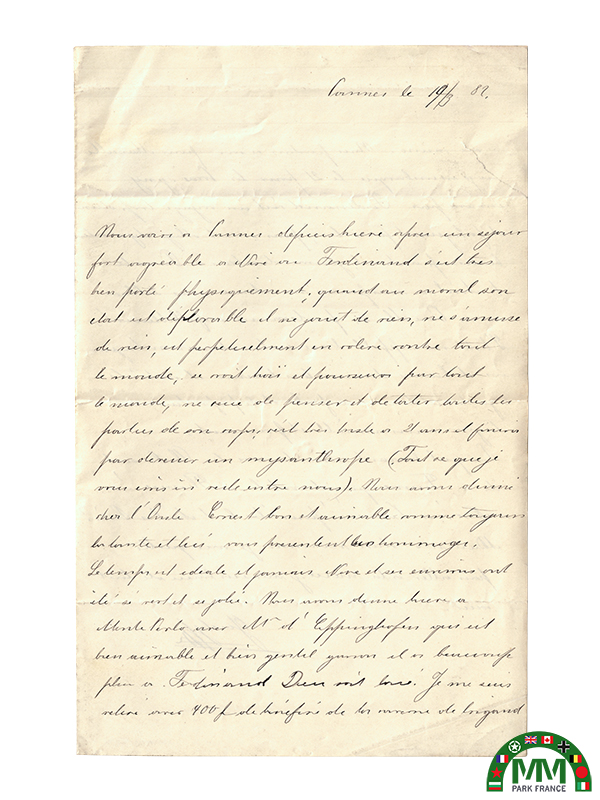 Cannes le 19/3 82.
Nous voici a Cannes depuis hière apres un séjour
fort agréable a Nice ou Ferdinand s'est très
bien porté physiquement, quand au moral son
état est deplorable il ne jouit de rien, ne s'amuse
de rien, est perpetuelment en colère contre tout
le monde, se voit haï et poursuivi par tout
le monde, ne cesse de penser et de tater toutes les
parties de son corps, c'est très triste a 21 ans et finira
par devenir un mysanthrope (Tout ce que je
vous écris ici reste entre nous). Nous avons diné
chez l'Oncle Ernest bon et aimable comme toujours
la tante et lui vous presentent leurs hommages.
Le temps est ideale et jamais Nice et ses environs ont
été si vert et si jolie. Nous avons diné hière a
Monte Carlo avec Mr d'Eppinghofen qui est
bien aimable et très gentil garçon il a beaucoup
plu a Ferdinand Dieu soit loué. Je me suis
retiré avec 400 f de bénéfice de la caverne de brigand
MM
PARK FRANCE